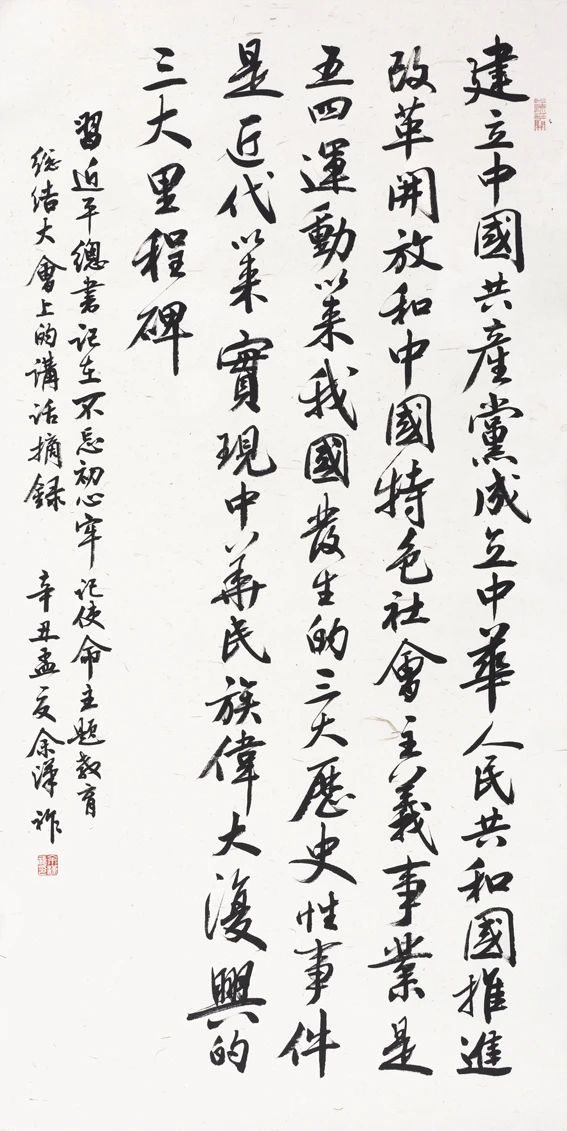 建立中國共產黨成立中華人民共和國推進
改革開放和中國特色社會主義事業是
五四運動以来我國發生的三大歷史性事件
是近代以来實現中華民族偉大復興的
三大里程碑
習近平總書記在不忘初心牢記使命主題教育
總结大會上的講話摘録 辛丑孟夏余